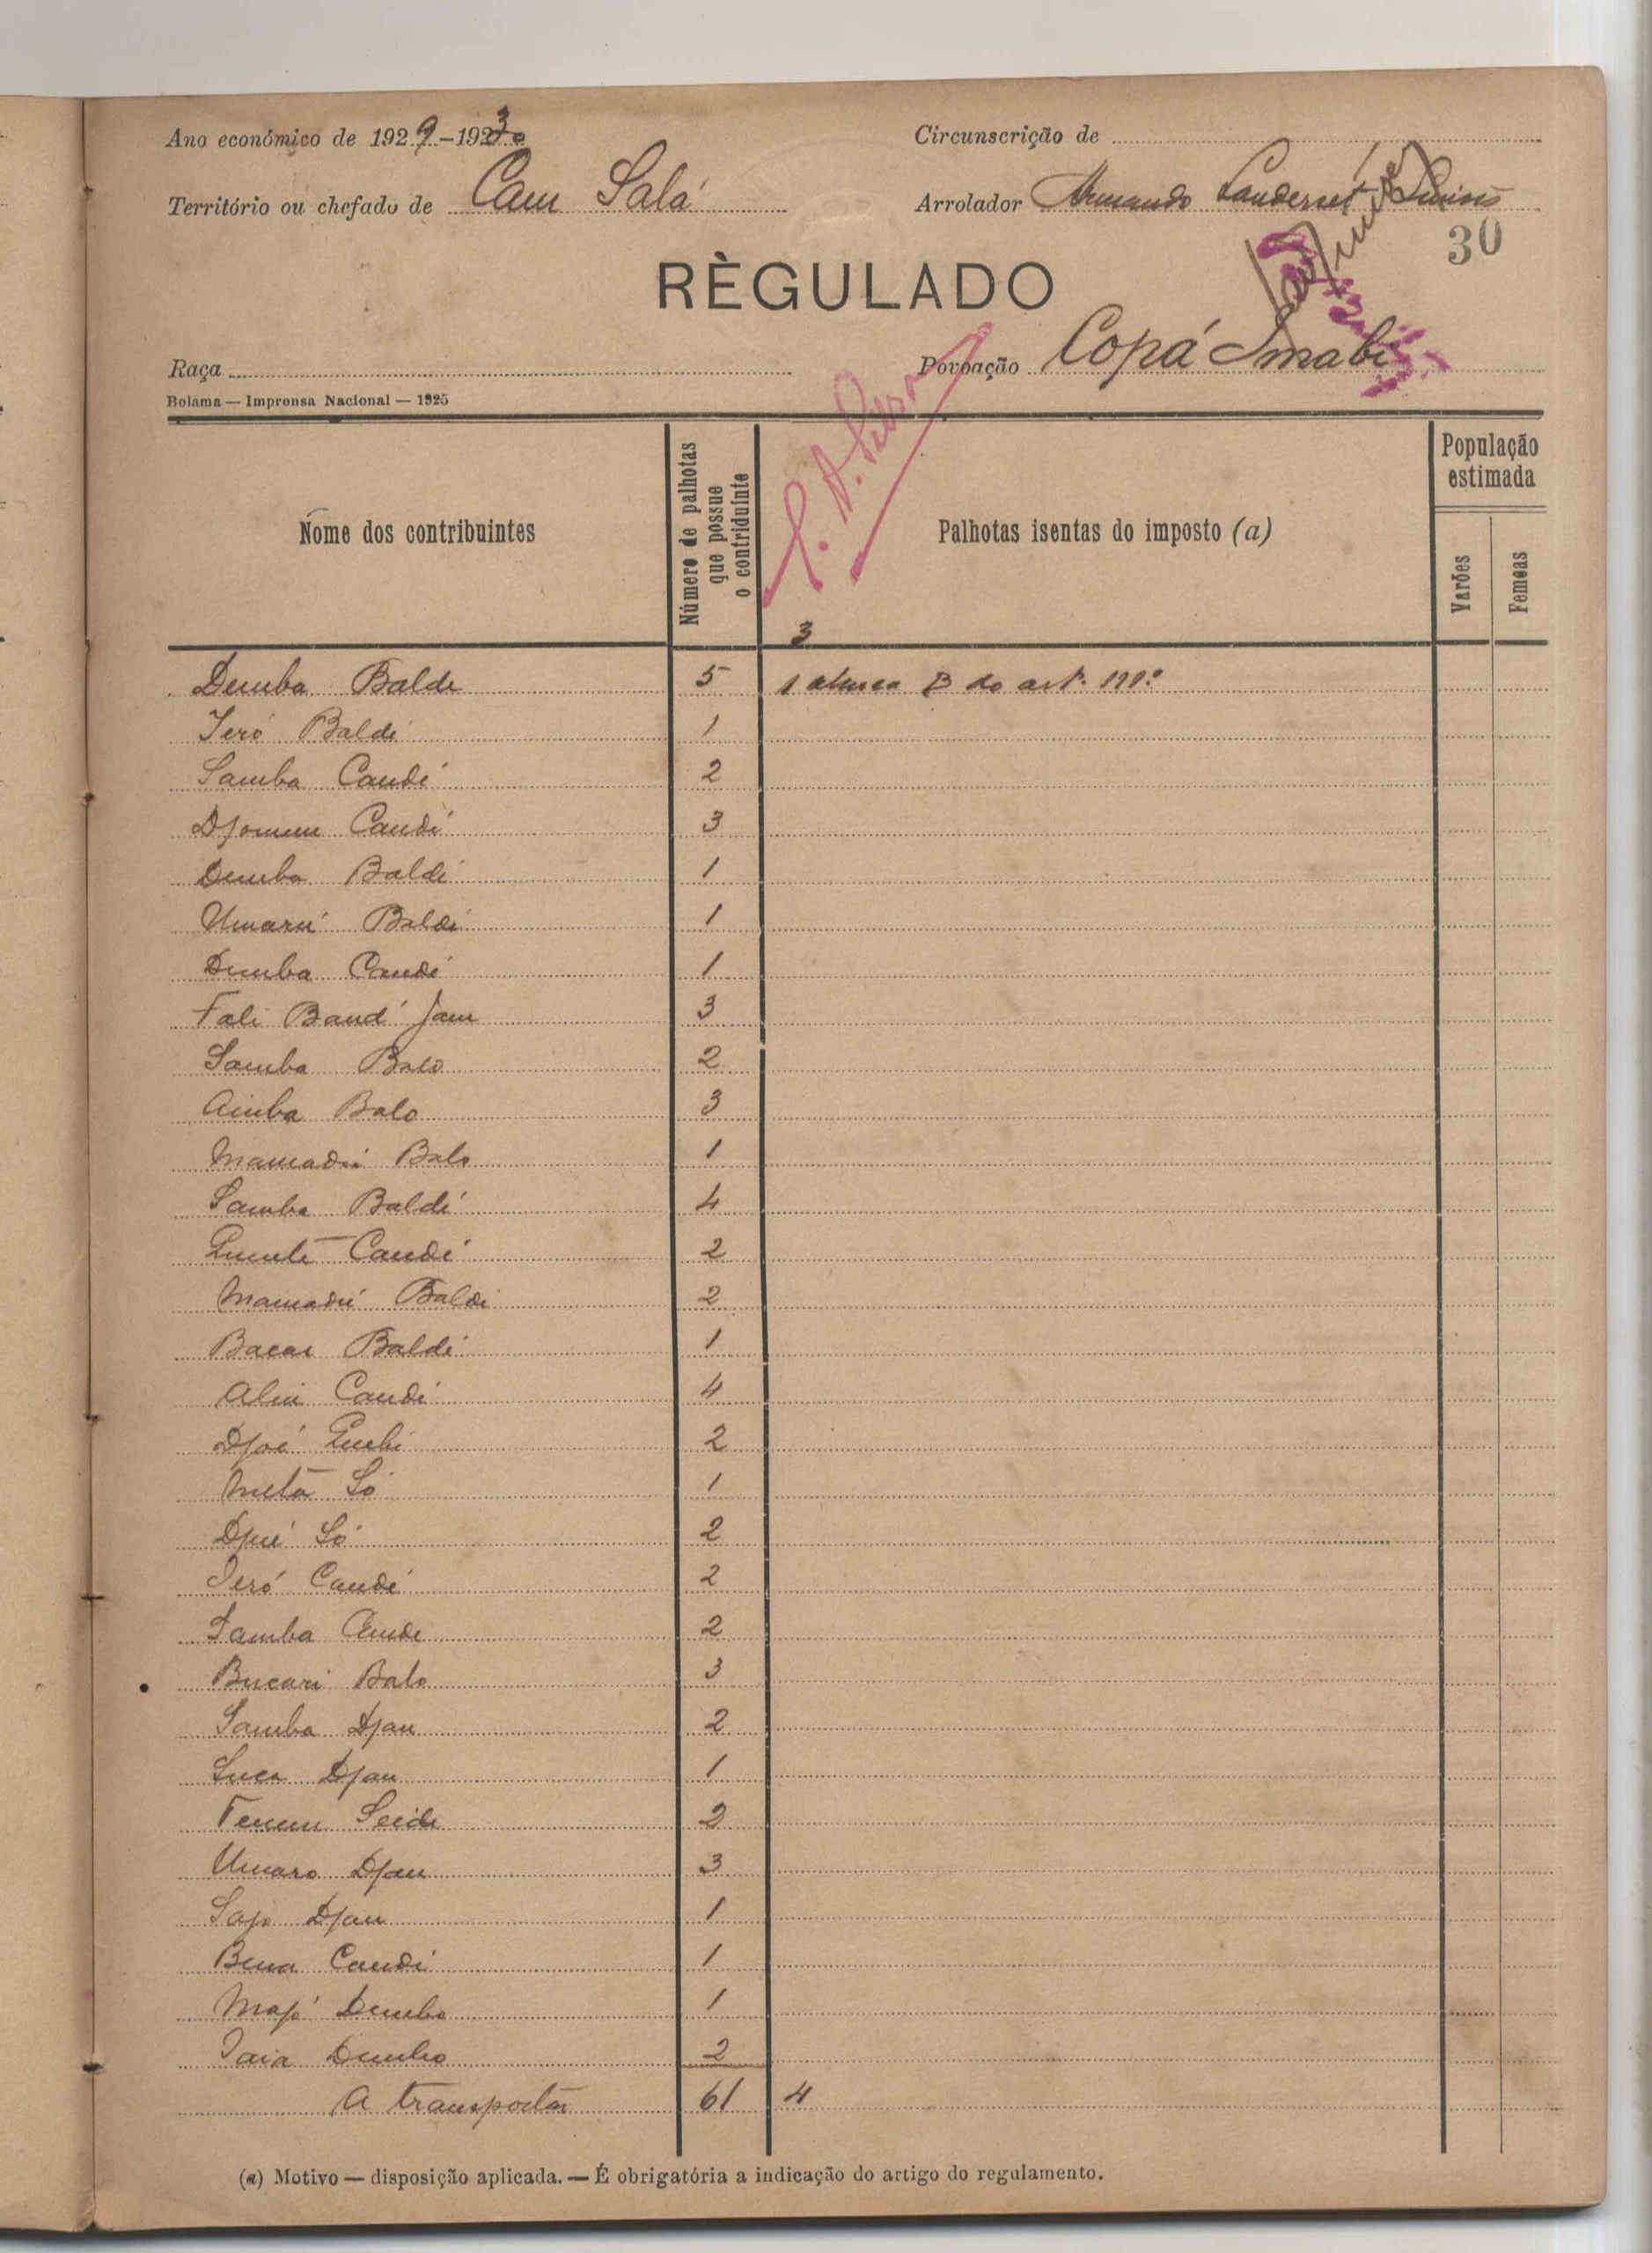 Ano económico de 1929-1930
Circunscrição de
Território ou chefado de Cam Salá
Arrolador Armando Landerset Simões
30
RÈGULADO
Raça
Povoação Copá Imabi
Bolama — Imprensa Nacional — 1925
Nome dos contribuintes
Número de palhotas
que possue
o contriduinte
Palhotas isentas do imposto (a)
População
estimada
Varões
Femeas
3
Demba Balde 5 1 alinea B do art.
Ieró Baldé 1
Samba Candé 2
Candé 3
Demba Baldé 1
Umarú Baldé 1
Demba Candé 1
Fali Band Jam 3
Samba Balo 2
Balo 3
Mamadú Balo 1
Samba Baldé 4
Candé 2
Mamadú Baldé 2
Bacar Baldé 1
Aliu Candé 4
2
Só 1
Só 2
Ieró Candé 2
Samba Cande 2
Bucari Balo 3
Samba Djau 2
Djau 1
Seide 2
Umaro Djau 3
Djau 1
Candé 1
Demba 1
Iaia Dembo 2
A transportar 61 4
(a) Motivo — disposição aplicada. — É obrigatória a indicação do artigo do regulamento.